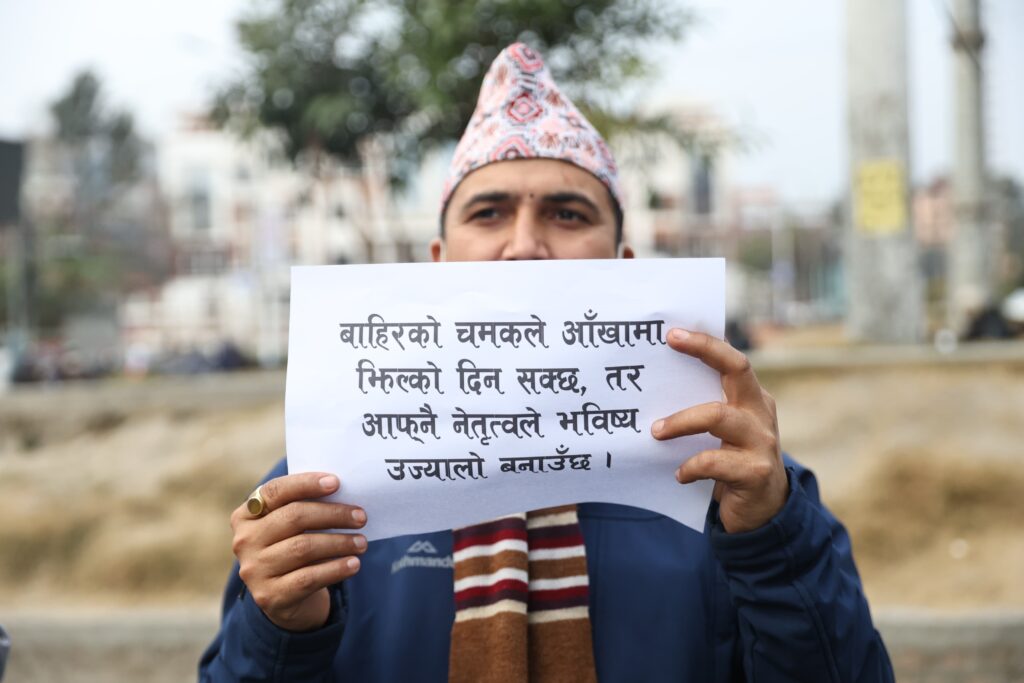 बाहिरको चमकले आँखामा
झिल्को दिन सक्छ, तर
आफ्‌नै नेतृत्वले भविष्य
उज्यालो बनाउँछ ।